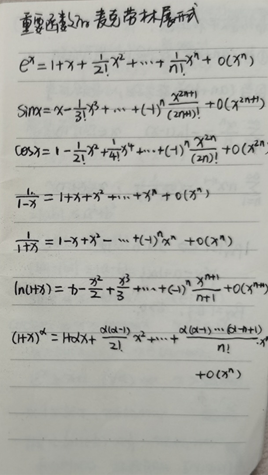 重要函数的麦克劳林展开式
e^x = 1 + x + \frac{1}{2!}x^2 + ⋯ + \frac{1}{n!}x^n + o(x^n)
sinx = x - \frac{1}{3!}x^3 + ⋯ + (-1)^n \frac{x^{2n+1}}{(2n+1)!} + o(x^{2n+1})
cosx = 1 - \frac{1}{2!}x^2 + \frac{1}{4!}x^4 + ⋯ + (-1)^n \frac{x^{2n}}{(2n)!} + o(x^{2n}
\frac{1}{1-x} = 1 + x + x^2 + ⋯ + x^n + o(x^n)
\frac{1}{1+x} = 1 - x + x^2 - ⋯ + (-1)^n x^n + o(x^n)
ln(1+x) = x - \frac{x^2}{2} + \frac{x^3}{3} + ⋯ + (-1)^n \frac{x^{n+1}}{n+1} + o(x^{n+1}
(1+x)^α = 1 + αx + \frac{α(α-1)}{2!}x^2 + ⋯ + \frac{α(α-1)⋯(α-n+1)}{n!}x^n
+ o(x^n)